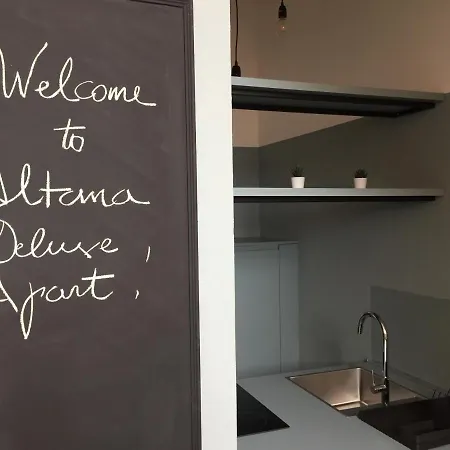 Welcome
to
Altana
Deluxe,
Apart,